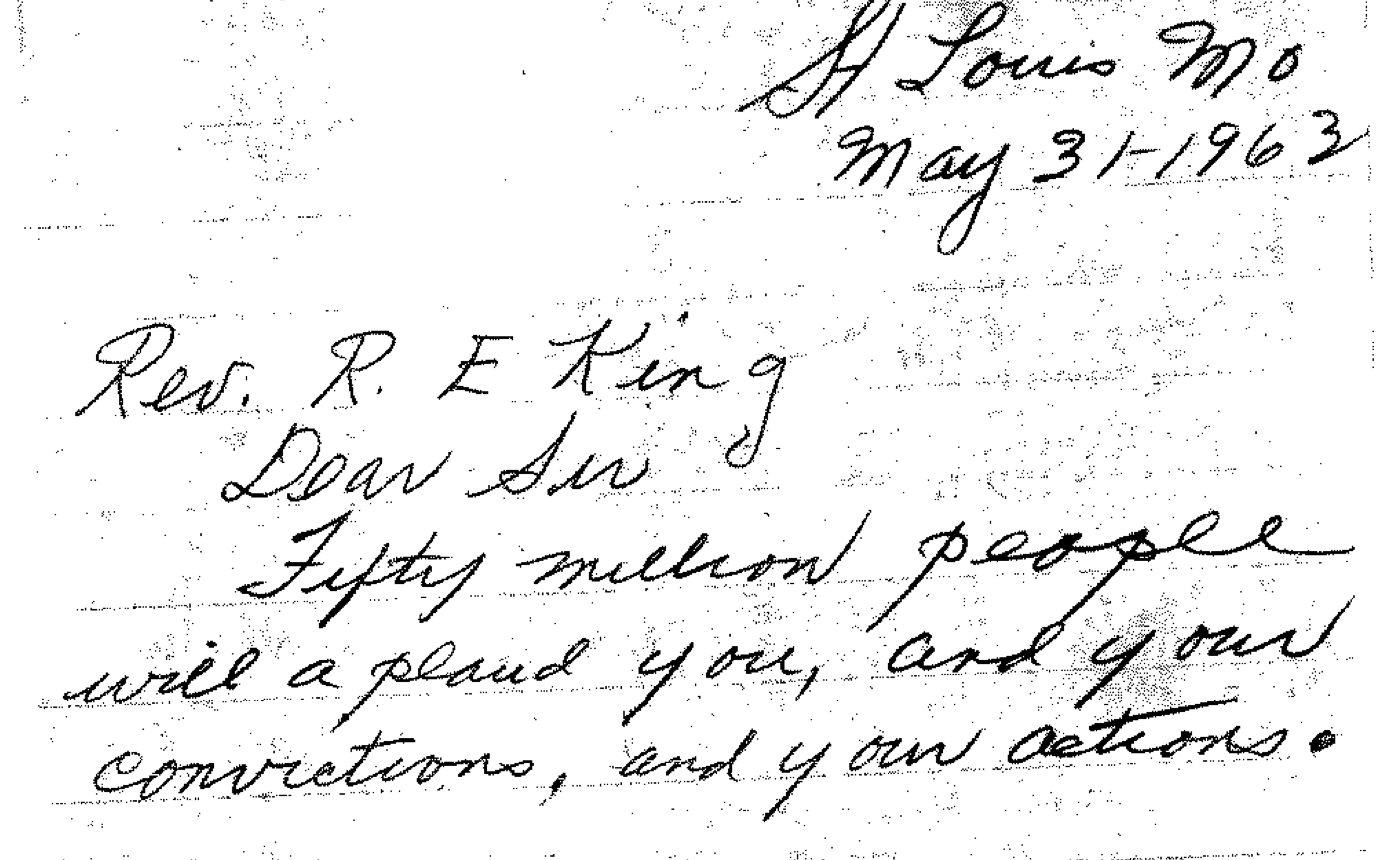 St Louis Mo
May 31-1963
Rev. R. E King
Dear Sir
Fifty million people
will a plaud you, and your
convictions, and your actions.